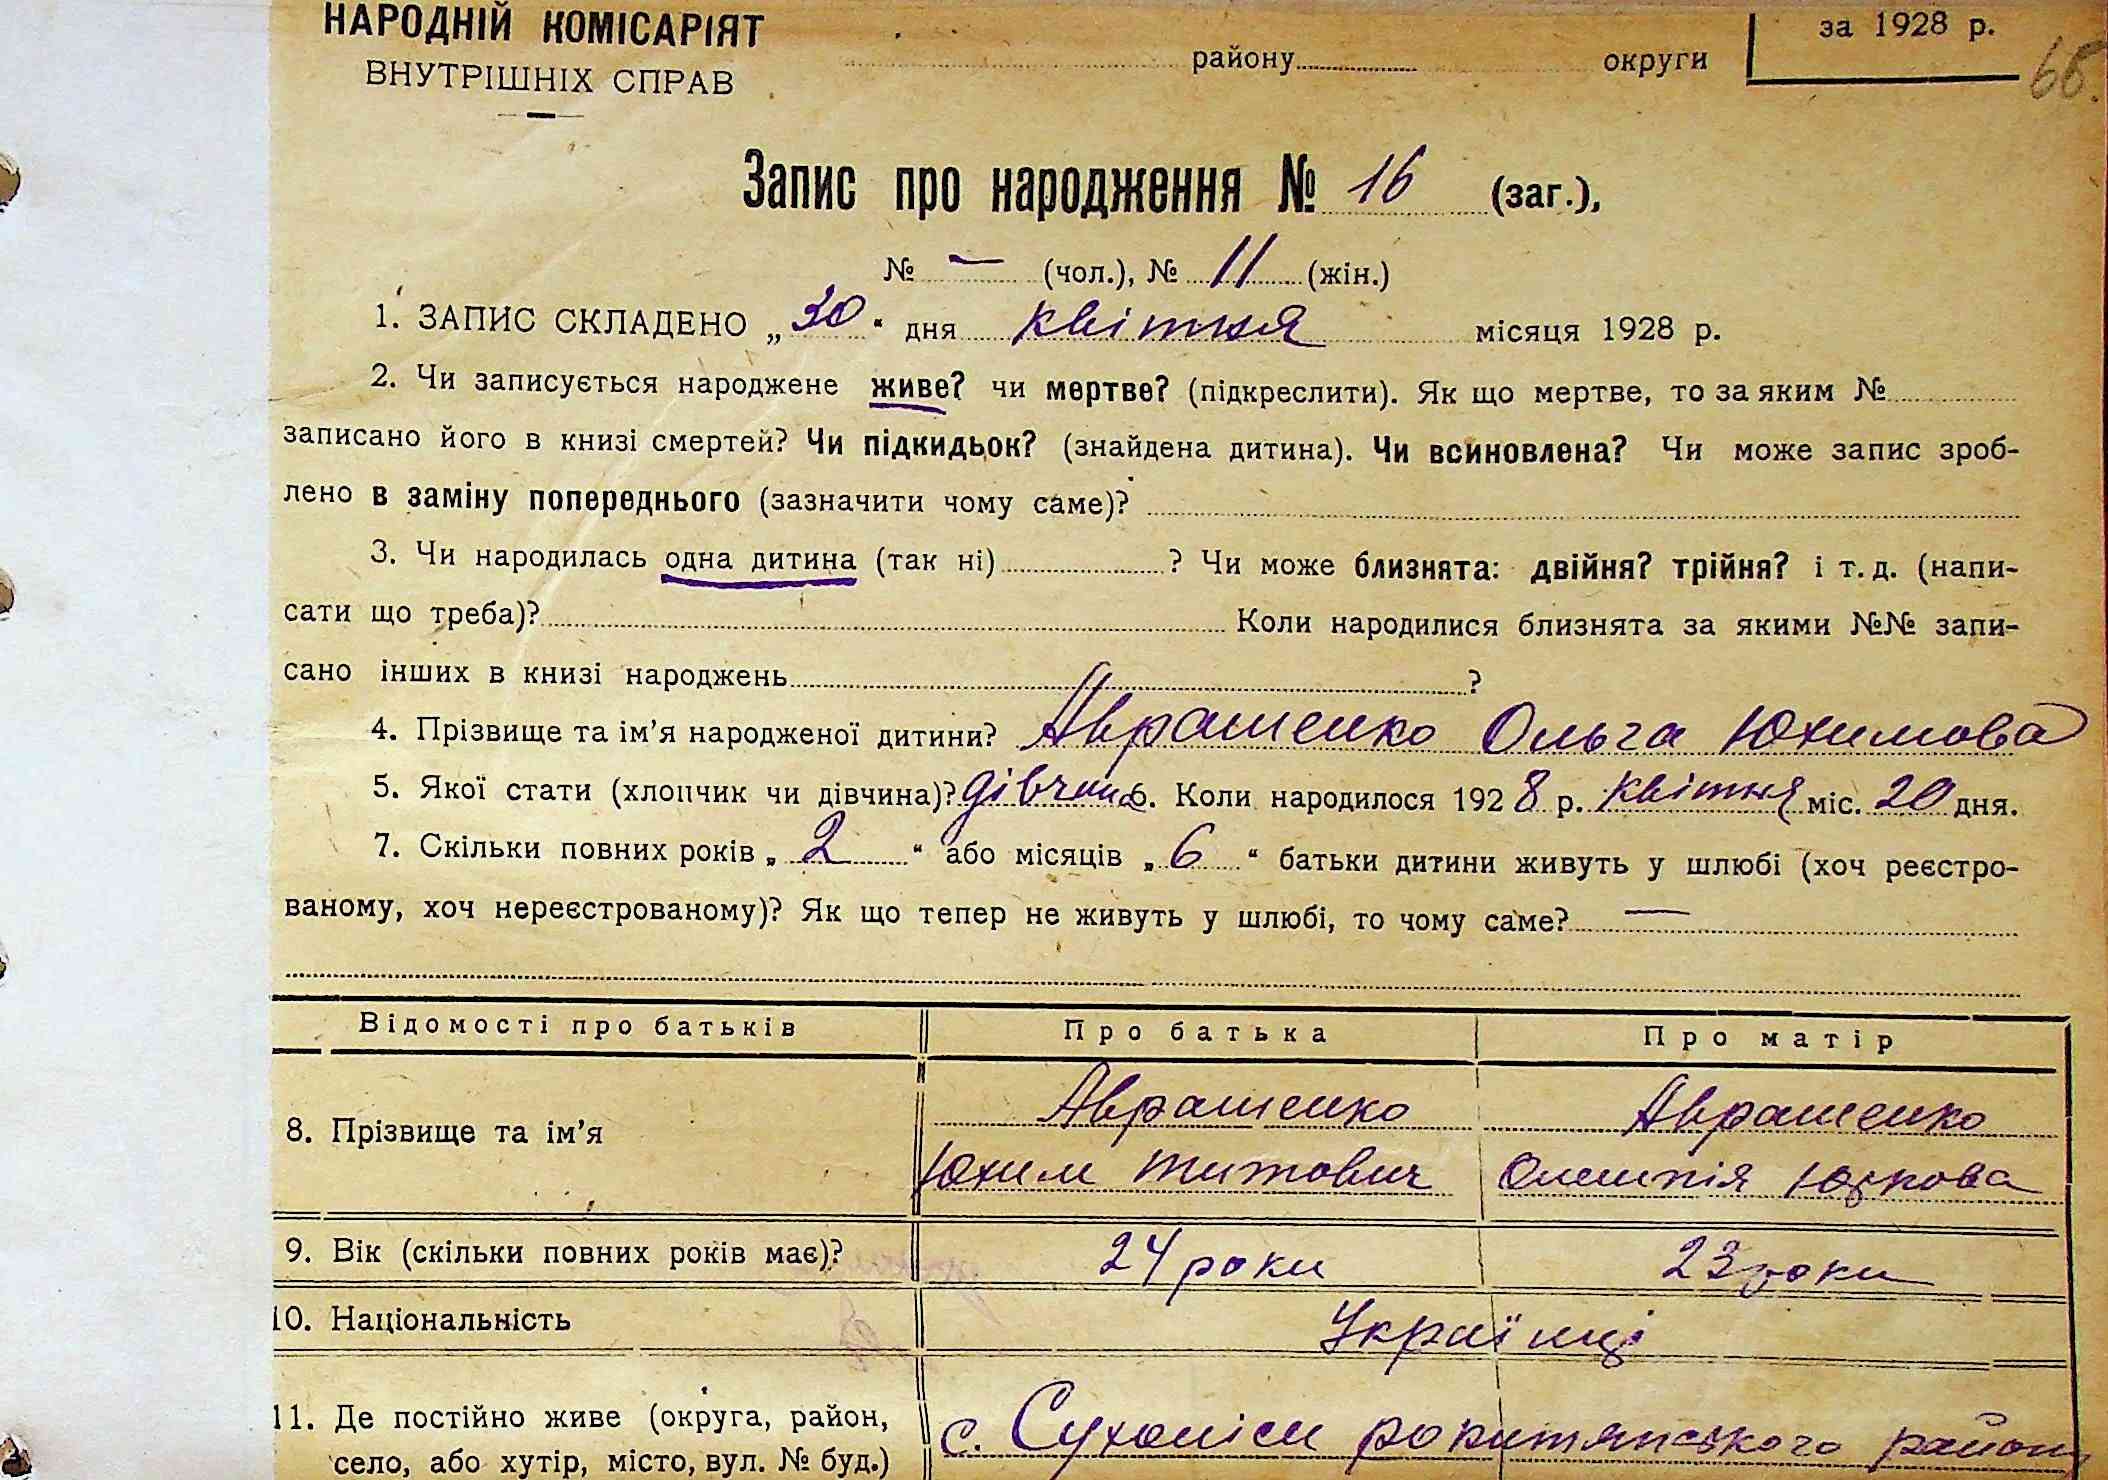 НАРОДНІЙ КОМІСАРІЯТ
ВНУТРІШНІХ СПРАВ
району округи
за 1928 р.
66.
Запис про народження № 16 (заг.),
№ — (чол.), № 11 (жін.)
1. ЗАПИС СКЛАДЕНО „30“ дня квітня місяця 1928 р.
2. Чи записується народжене живе? чи мертве? (підкреслити). Як що мертве, то за яким №
записано його в книзі смертей? Чи підкидьок? (знайдена дитина). Чи всиновлена? Чи може запис зроб-
лено в заміну попереднього (зазначити чому саме)?
3. Чи народилась одна дитина (так ні) ? Чи може близнята: двійня? трійня? і т. д. (напи-
сати що треба)? Коли народилися близнята за якими №№ запи-
сано інших в книзі народжень ?
4. Прізвище та ім’я народженої дитини? Аврашенко Ольга Юхимова
5. Якої стати (хлопчик чи дівчина)? дівчина 6. Коли народилося 1928 р. квітня міс. 20 дня.
7. Скільки повних років „2“ або місяців „6“ батьки дитини живуть у шлюбі (хоч реєстро-
ваному, хоч нереєстрованому)? Як що тепер не живуть у шлюбі, то чому саме? —
Відомості про батьків Про батька Про матір
8. Прізвище та ім’я Аврашенко Юхим Титович Аврашенко Олимпія Юркова
9. Вік (скільки повних років має)? 24 роки 23 роки
10. Національність Українці
11. Де постійно живе (округа, район,
село, або хутір, місто, вул. № буд.) с. Сухоліси рокитянського району